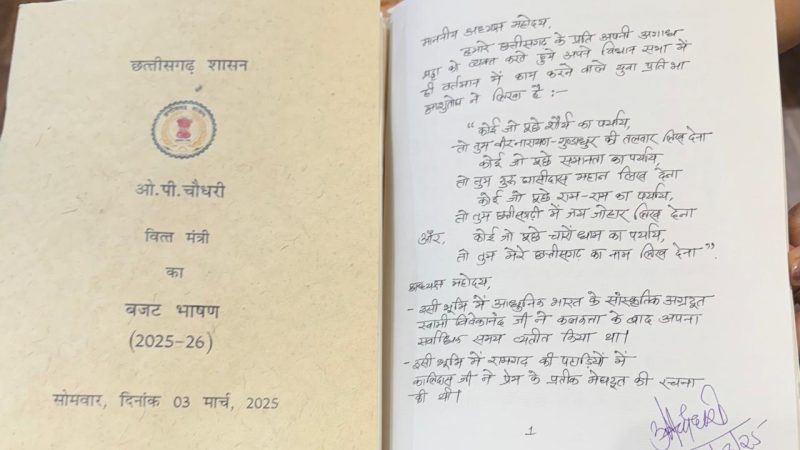 छत्तीसगढ़ शासन
ओ.पी.चौधरी
वित्त मंत्री
का
बजट भाषण
(2025-26)
सोमवार, दिनांक 03 मार्च, 2025
माननीय अध्यक्ष महोदय,
हमारे छत्तीसगढ़ के प्रति अपनी अगाध
श्रद्धा को व्यक्त करते हुये अपने विधान सभा में
ही वर्तमान में काम करने वाले युवा प्रतिभा
ने लिखा है :-
" कोई जो पूछे शौर्य का पर्याय,
तो तुम वीरनारायण-गुण्डाधुर की तलवार लिख देना
कोई जो पूछे समानता का पर्याय,
तो तुम गुरु घासीदास महान लिख देना
कोई जो पूछे राम-राम का पर्याय,
तो तुम छत्तीसगढ़ी में जय जोहार लिख देना
और, कोई जो पूछे चारों धाम का पर्याय,
तो तुम मेरे छत्तीसगढ़ का नाम लिख देना".
अध्यक्ष महोदय,
- इसी भूमि में आधुनिक भारत के सांस्कृतिक अग्रदूत
स्वामी विवेकानंद जी ने कलकत्ता के बाद अपना
सर्वाधिक समय व्यतीत किया था।
- इसी भूमि में रामगढ़ की पहाड़ियों में
कालिदास जी ने प्रेम के प्रतीक मेघदूत की रचना
की थी।
1